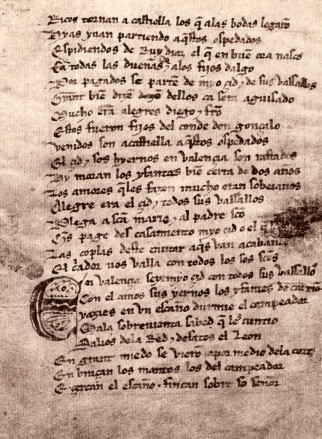 Ricos tornan a castiella los q̃ alas bodas legarõ
Hyas yuan partiendo aq̃stos ospedados
Espidiendos de Ruy diaz el q̃ en buen ora nasco
E a todas las dueñas ⁊ alos fijos dalgo
Por pagados se parten de myo çid ⁊ de sus vassallos
Grant bien dizen dellos ca sera aguisado
Mucho eran alegres diego ⁊ ferrãdo
Estos fueron fijos del conde don gonçalo
Venidos son acastiella aq̃stos ospedados
El çid ⁊ sos hyernos en valençia son rastados
Hy moran los yfantes bien çerca de dos años
Los amores q̃les fazen mucho eran soberanos
Alegre era el çid ⁊ todos sus vassallos
Plega a sc̃a maria ⁊ al padre sc̃o
Ques page des casamiento myo çid o el q̃
Las coplas deste cantar aq̃s van acabando
El c̃ador vos valla con todos los sos sc̃os
En valençia seye myo çid con todos sus vassallos
Con el amos sus yernos los yfantes de carrion
Yazies en vn escaño durmie el campeador
Mala sobreuienta sabed que les cuntio
Salios dela Red ⁊ desatos el Leon
En grant miedo se vieron por medio dela cort
Enbraçan los mantos los del campeador
E çercan el escaño ⁊ fincan sobre so señor